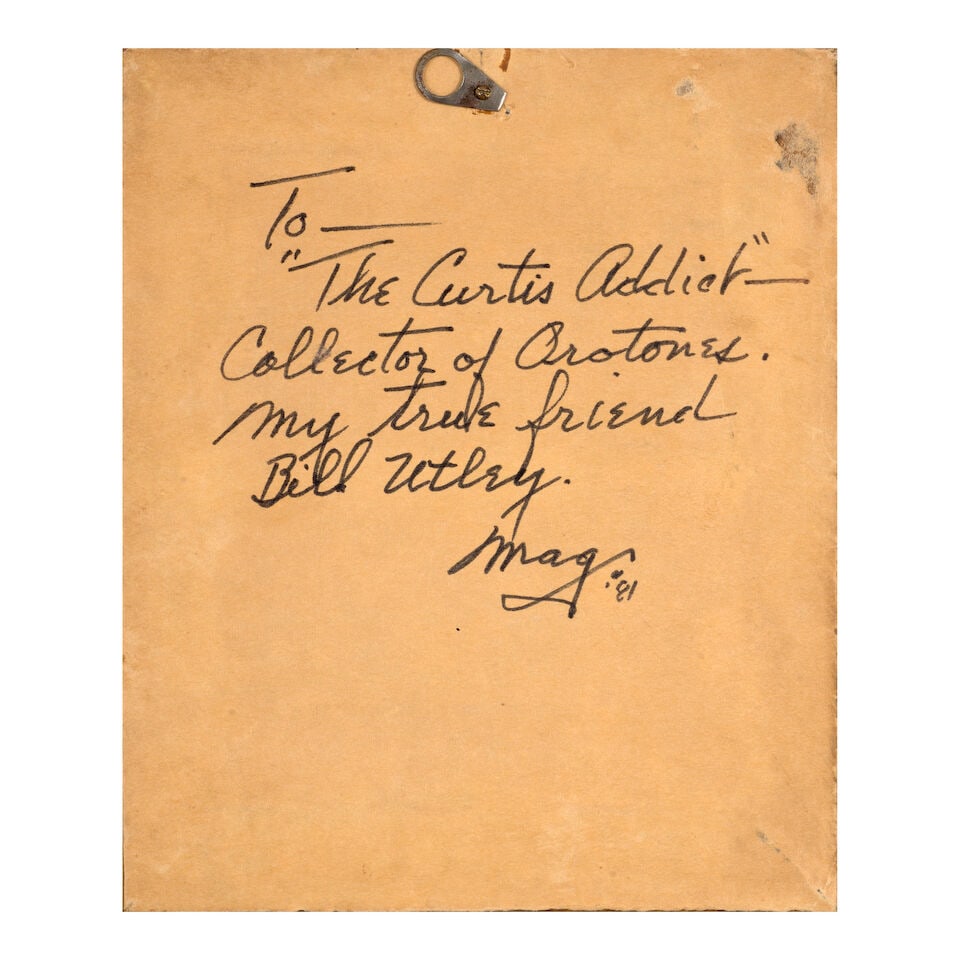 To —
"The Curtis Addict" —
Collector of Orotones.
My true friend
Bill Utley.
Mag '81